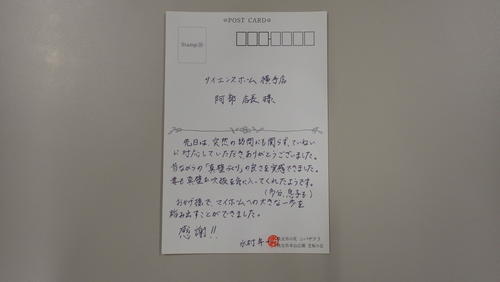 POST CARD
Stamp
サイエンスホーム 横手店
阿部 店長 様
先日は、突然の訪問にも関らず、ていねい
に対応していただきありがとうございました。
昔ながらの「真壁づくり」の良さを実感できました。
妻も真壁と吹抜を気に入ってくれたようです。
(多分、息子も)
おかげ様で、マイホームへの大きな一歩を
踏み出すことができました。
感謝!!